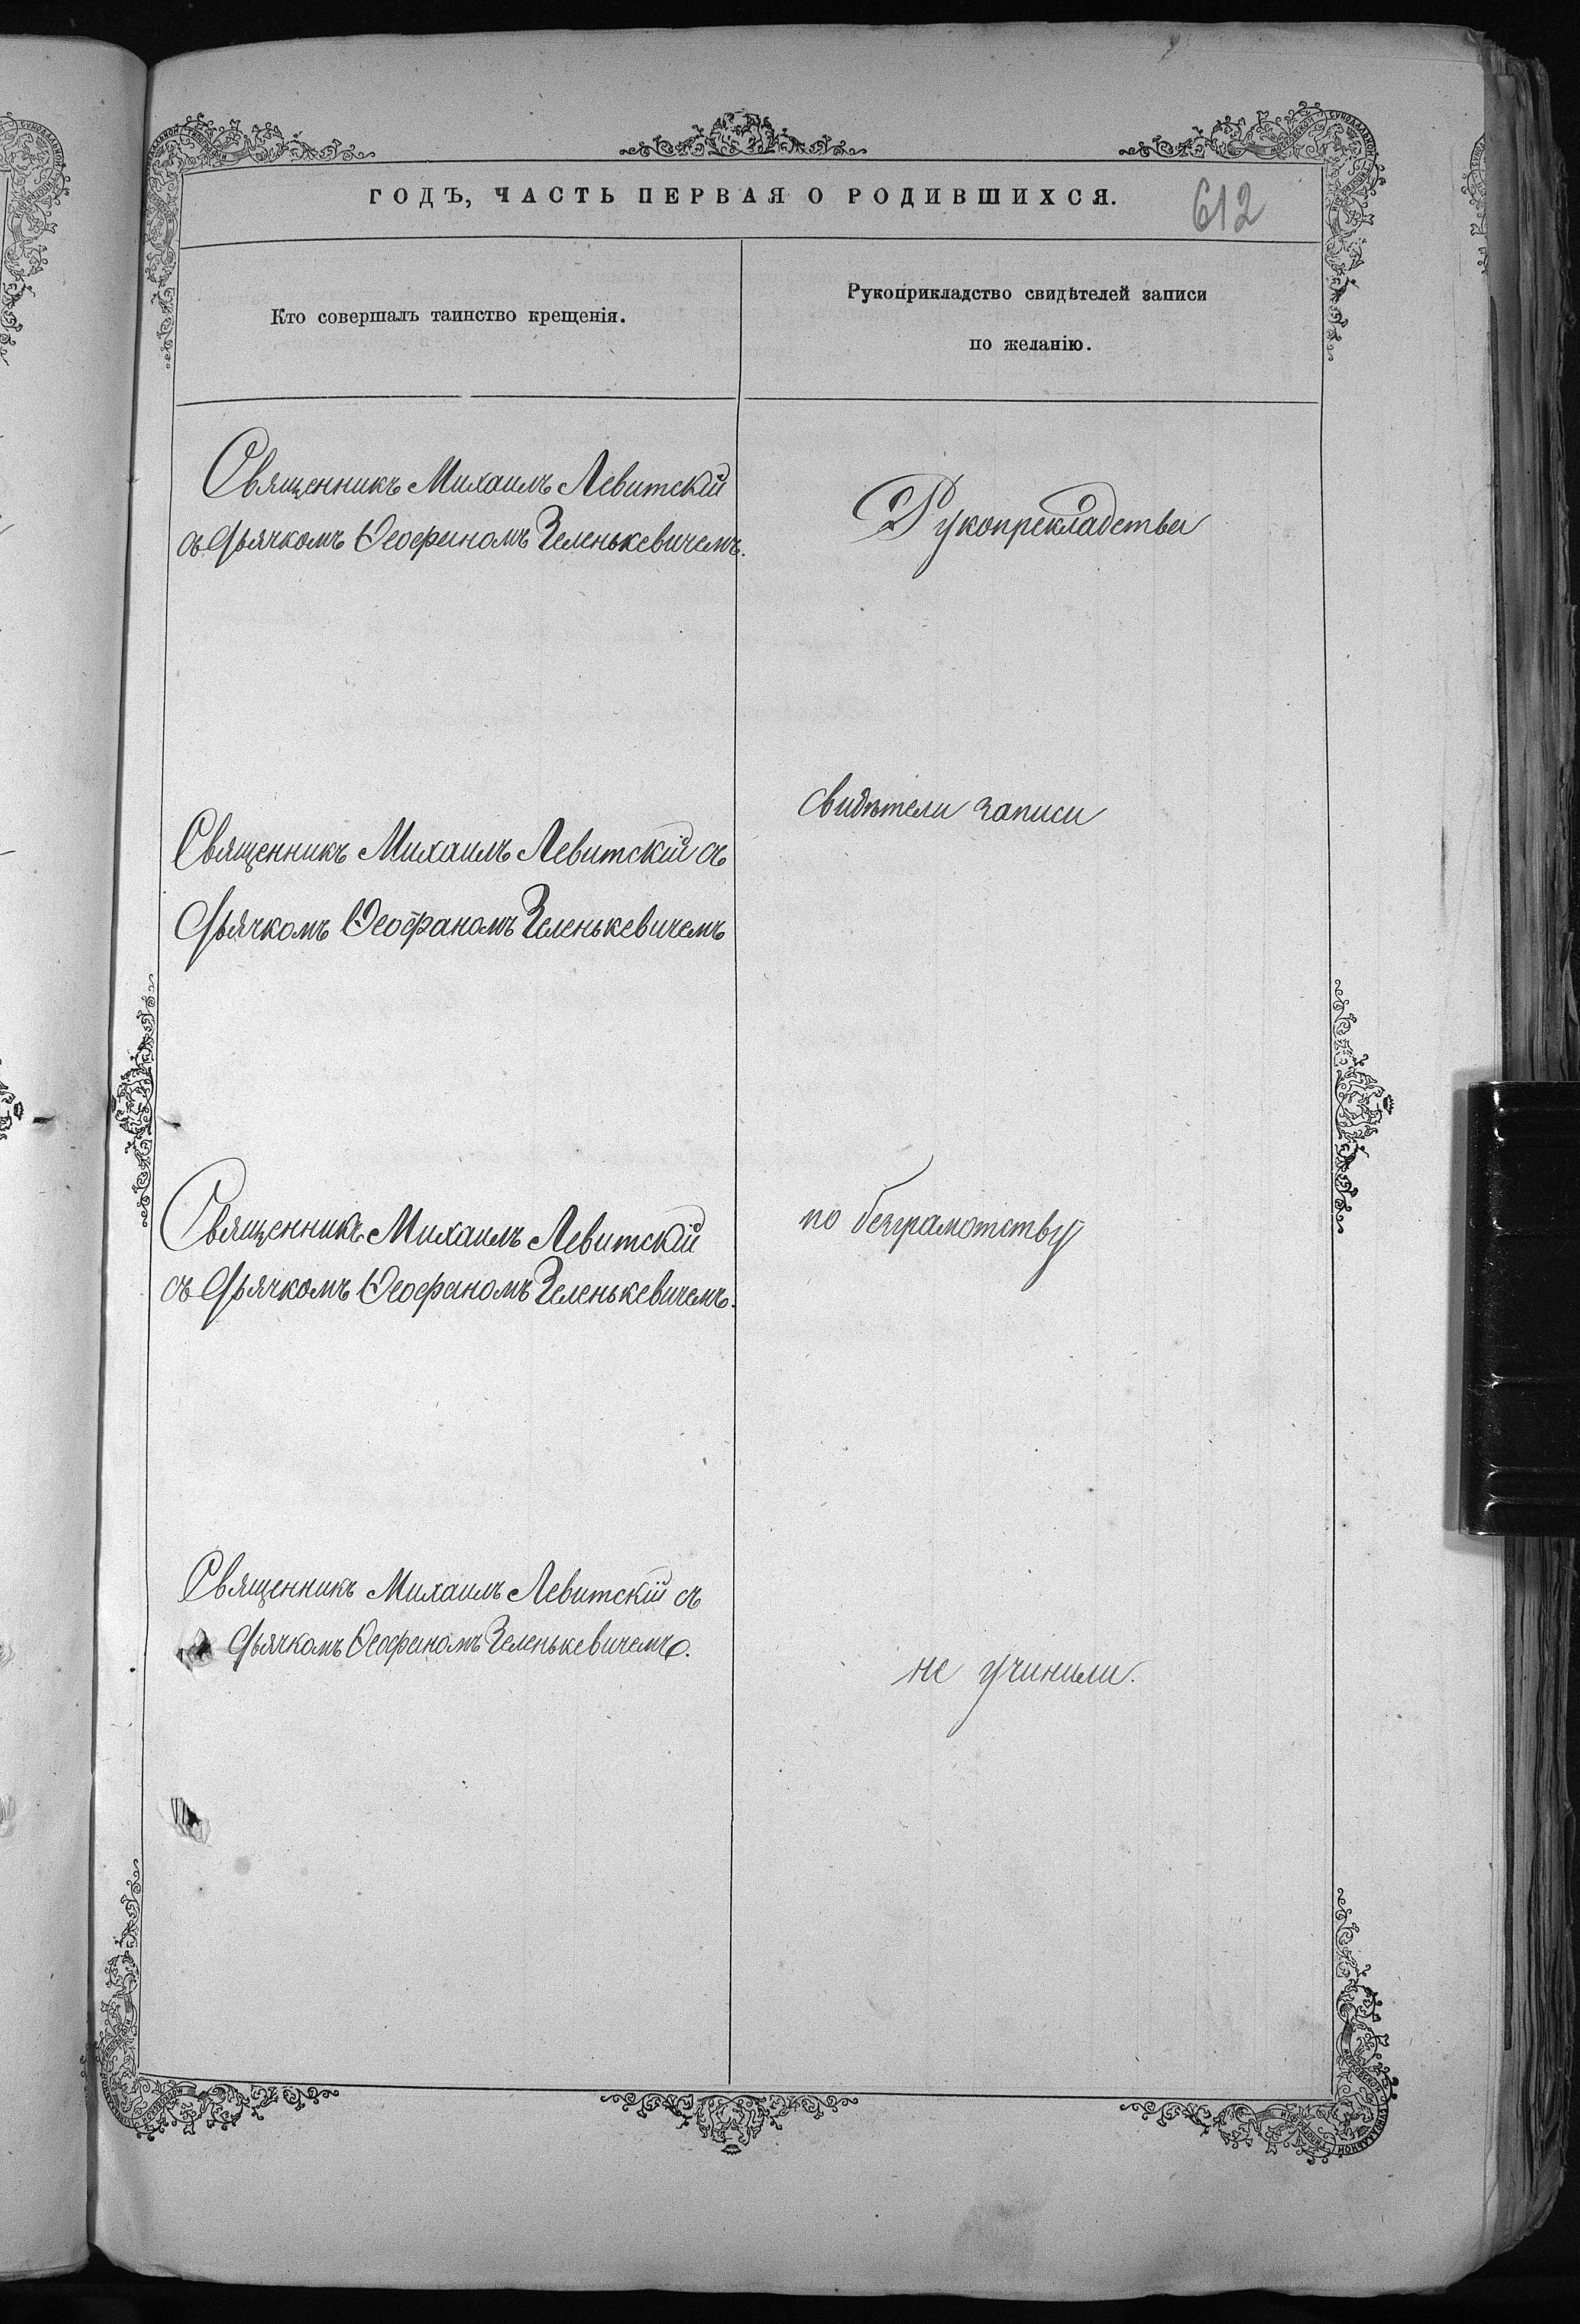 ГОДЪ, ЧАСТЬ ПЕРВАЯ О РОДИВШИХСЯ.
612
Кто совершалъ таинство крещенія.
Рукоприкладство свидѣтелей записи
по желанію.
Священникъ Михаилъ Левитскій
съ Дьячкомъ Ѳеофаномъ Зеленькевичемъ.
Рукопрекладства
свидѣтели записи
Священникъ Михаилъ Левитскій съ
Дьячкомъ Ѳеофаномъ Зеленькевичемъ
по безграмотству
Священникъ Михаилъ Левитскій
съ Дьячкомъ Ѳеофаномъ Зеленькевичемъ.
Священникъ Михаилъ Левитскій съ
Дьячкомъ Ѳеофаномъ Зеленькевичемъ.
не учинили.